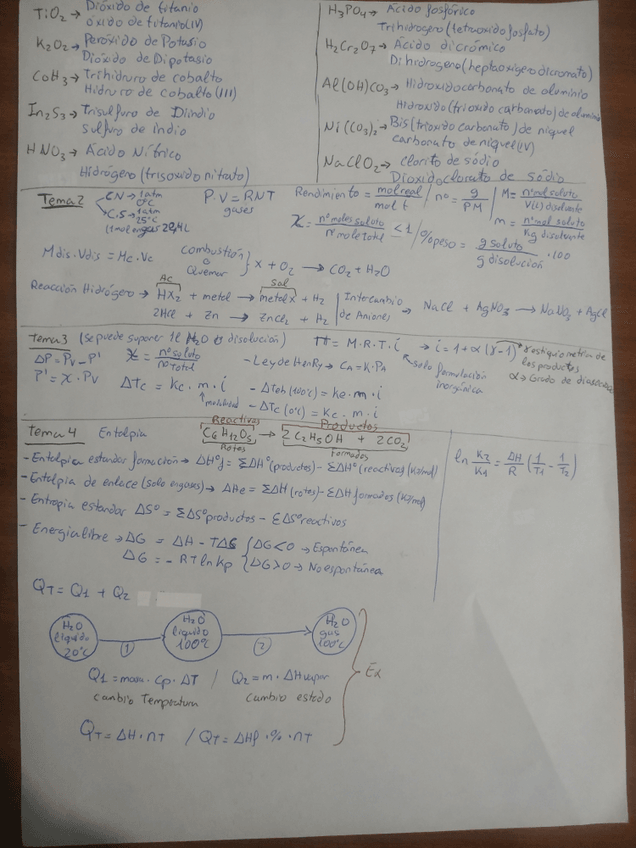 TiO₂ → Dióxido de titanio
óxido de titanio(IV)
K₂O₂ → Peróxido de Potasio
Dióxido de Dipotasio
CoH₃ → Trihidruro de cobalto
Hidruro de cobalto(III)
In₂S₃ → Trisulfuro de Diindio
sulfuro de indio
HNO₃ → Ácido Nítrico
Hidrógeno (trioxido nitrato)
H₃PO₄ → Ácido fosfórico
Trihidrogeno (tetraoxido fosfato)
H₂Cr₂O₇ → Ácido dicrómico
Dihidrogeno (heptaoxigeno dicromato)
Al(OH)CO₃ → Hidroxidocarbonato de aluminio
Hidroxido (trioxido carbonato) de aluminio
Ni(CO₃)₂ → Bis(trioxido carbonato) de niquel
carbonato de niquel(IV)
NaClO₂ → clorito de sódio
Dioxidoclorato de sódio
Tema 2
C.N → 1 atm
0°C
C.S → 1 atm
25°C
(1 mol en gases 22,4 L
P·V = RNT
gases
Rendimiento = mol real / mol t. / n° = g / PM
M = nº mol soluto / V(L) disolvente
m = nº mol soluto / Kg disolvente
χ = nº moles soluto / Nº mol total < 1 / % peso = g soluto / g disolución · 100
Mdis · Vdis = Mc · Vc
Combustión
o
Quemar } X + O₂ → CO₂ + H₂O
Reacción Hidrógeno → HX₂ + metal → metal X + H₂
Ac
Sal
2HCl + Zn → ZnCl₂ + H₂
Intercambio
de Aniones → NaCl + AgNO₃ → NaNO₃ + AgCl
Tema 3 (se puede suponer 1l H₂O es disolución)
ΔP = Pv - P'
P' = χ · Pv
χ = nº soluto / nº Total
ΔTc = Kc · m · i
molalidad
- Ley de Henry → CA = K·PA
- ΔTeb (100°C) = Ke · m · i
- ΔTc (0°C) = Kc · m · i
π = M·R·T·i
solo formulación
inorgánica
→ i = 1 + α(γ-1)
γ estequiometria de
los productos
α → Grado de
Tema 4 Entalpia
Reactivos
Productos
C₆H₁₂O₆ → 2C₂H₅OH + 2CO₂
Rotos
Formados
- Entalpia estandar formación → ΔH°f = ΣΔH°(productos) - ΣΔH°(reactivos) (KJ/mol)
- Entalpia de enlace (solo en gases) → ΔHe = ΣΔH (rotos) - ΣΔH formados (KJ/mol)
- Entropia estandar ΔS° = ΣΔS° productos - ΣΔS° reactivos
- Energia libre → ΔG = ΔH - TΔS { ΔG < 0 → Espontánea
ΔG = -RT ln Kp { ΔG > 0 → No espontánea
ln K₂/K₁ = ΔH/R (1/T₁ - 1/T₂)
QT = Q1 + Q2
H₂O
liquido
20°C
1
H₂O
liquido
100°C
2
H₂O
gas
100°C
Q1 = masa · Cp · ΔT / Q2 = m · ΔHvapor
cambio Temperatura
Cambio estado
Ex
QT = ΔH · nT / QT = ΔHf · % · nT